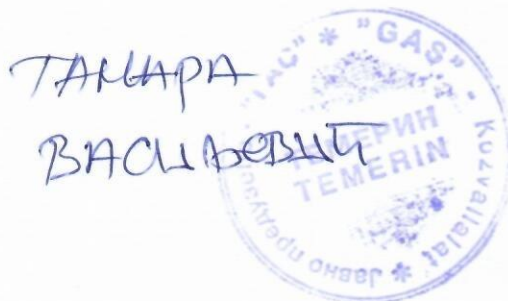 ТАМАРА
ВАСИЉЕВИЋ
"ГАС" * "GAS" * Közvállalat * Јавно предузеће
ТЕМЕРИН
TEMERIN